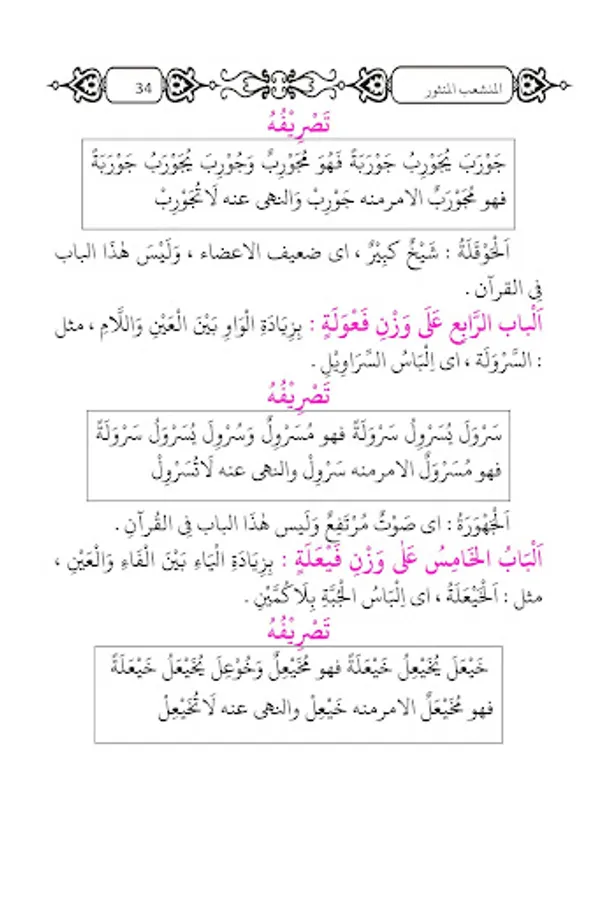 المنشعب المنثور
34
تَصْرِيْفُهُ
جَوْرَبَ يُجَوْرِبُ جَوْرَبَةً فَهُوَ مُجَوْرِبٌ وَجُوْرِبَ يُجَوْرَبُ جَوْرَبَةً
فهو مُجَوْرَبٌ الامرمنه جَوْرِبْ وَالنهى عنه لَاتُجَوْرِبْ
اَلْحَوْقَلَةُ : شَيْخٌ كبِيْرٌ ، اى ضعيف الاعضاء ، وَلَيْسَ هٰذَا الباب
فِى القرآن .
اَلْباب الرَّابِع عَلَى وَزْنِ فَعْوَلَةٍ : بِزِيَادَةِ الْوَاوِ بَيْنَ الْعَيْنِ وَاللَّامِ ، مثل
: السَّرْوَلَة ، اى اِلْبَاسُ السَّرَاوِيْلِ .
تَصْرِيْفُهُ
سَرْوَلَ يُسَرْوِلُ سَرْوَلَةً فهو مُسَرْوِلٌ وَسُرْوِلَ يُسَرْوَلُ سَرْوَلَةً
فهو مُسَرْوَلٌ الامرمنه سَرْوِلْ والنهى عنه لَاتُسَرْوِلْ
اَلْجَهْوَرَةُ : اى صَوْتٌ مُرْتَفِعٌ وَلَيس هٰذَا الباب فِى القُرآنِ .
اَلْبَابُ الخَامِسُ عَلٰى وَزْنِ فَيْعَلَةٍ : بِزِيَادَةِ الْيَاءِ بَيْنَ الْفَاءِ وَالْعَيْنِ ،
مثل : اَلْخَيْعَلَةُ ، اى اِلْبَاسُ الْجُبَّةِ بِلَاكُمَّيْنِ .
تَصْرِيْفُهُ
خَيْعَلَ يُخَيْعِلُ خَيْعَلَةً فهو مُخَيْعِلٌ وَخُوْعِلَ يُخَيْعَلُ خَيْعَلَةً
فهو مُخَيْعَلٌ الامرمنه خَيْعِلْ والنهى عنه لَاتُخَيْعِلْ